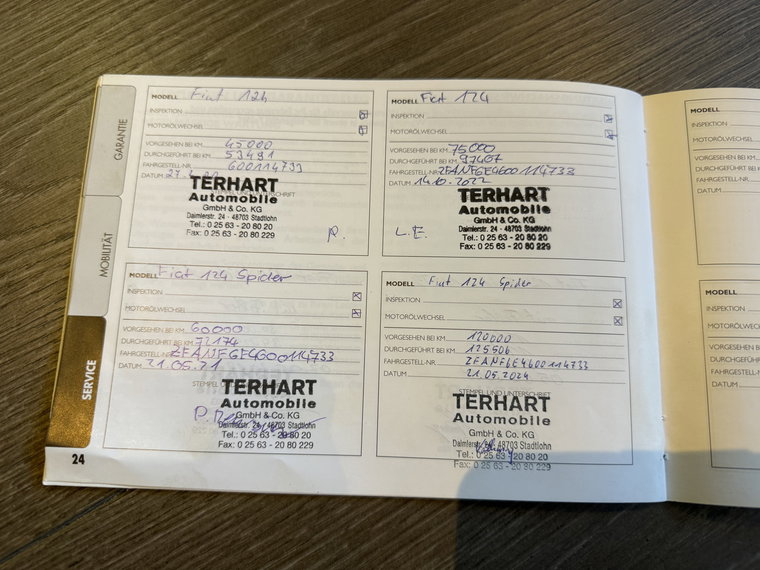 GARANTIE
MOBILITÄT
SERVICE
24
MODELL Fiat 124
INSPEKTION
MOTORÖLWECHSEL
VORGESEHEN BEI KM 45000
DURCHGEFÜHRT BEI KM 53491
FAHRGESTELL-NR. 600114733
DATUM
TERHART
Automobile
GmbH & Co. KG
Daimlerstr. 24 - 48703 Stadtlohn
Tel.: 0 25 63 - 20 80 20
Fax: 0 25 63 - 20 80 229
MODELL Fiat 124 Spider
INSPEKTION
MOTORÖLWECHSEL
VORGESEHEN BEI KM 60000
DURCHGEFÜHRT BEI KM 72174
FAHRGESTELL-NR. ZFANFGE4600114733
DATUM 21.05.21
STEMPEL
TERHART
Automobile
GmbH & Co. KG
Daimlerstr. 24 - 48703 Stadtlohn
Tel.: 0 25 63 - 20 80 20
Fax: 0 25 63 - 20 80 229
MODELL Fiat 124
INSPEKTION
MOTORÖLWECHSEL
VORGESEHEN BEI KM 75000
DURCHGEFÜHRT BEI KM 97407
FAHRGESTELL-NR. ZFANFGE4600114733
DATUM 14.10.2022
TERHART
Automobile
GmbH & Co. KG
Daimlerstr. 24 - 48703 Stadtlohn
Tel.: 0 25 63 - 20 80 20
Fax: 0 25 63 - 20 80 229
L.E.
MODELL Fiat 124 Spider
INSPEKTION
MOTORÖLWECHSEL
VORGESEHEN BEI KM 120000
DURCHGEFÜHRT BEI KM 125506
FAHRGESTELL-NR. ZFANF6E4600114733
DATUM 21.05.2024
STEMPEL UND UNTERSCHRIFT
TERHART
Automobile
GmbH & Co. KG
Daimlerstr. 24 - 48703 Stadtlohn
Tel.: 0 25 63 - 20 80 20
Fax: 0 25 63 - 20 80 229
MODELL
INSPEKTION
MOTORÖLWECHSEL
VORGESEHEN BEI KM
DURCHGEFÜHRT BEI
FAHRGESTELL-NR.
DATUM
MODELL
INSPEKTION
MOTORÖLWECHSEL
VORGESEHEN BEI KM
DURCHGEFÜHRT BEI
FAHRGESTELL-NR.
DATUM